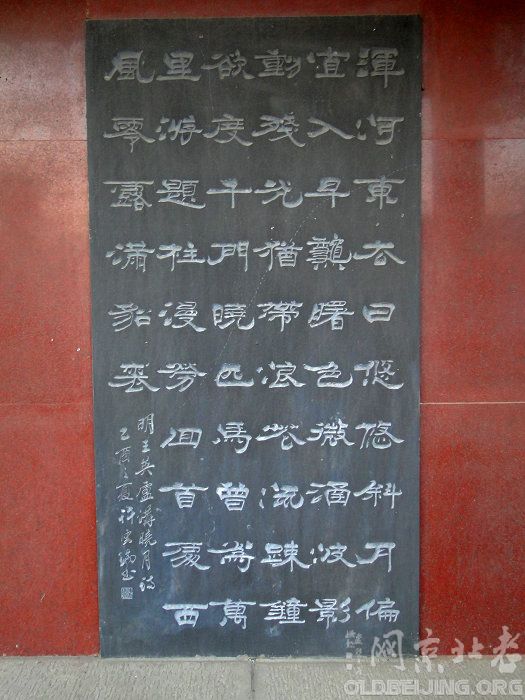 渾河東去日悠悠斜月偏
宜入早龝曙色微涵波影
動殘光猶帶浪花流踈鐘
欲度千門曉匹馬曾嘶萬
里游題柱漫勞回首處西
風零露滿貂裘
明王英盧溝曉月詩
乙酉夏許书
網京北老
OLDBEIJING.ORG